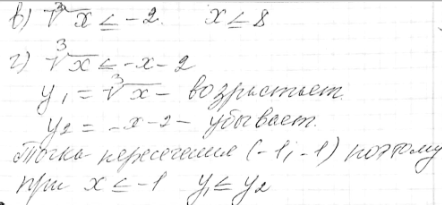 в) ∛x ≤ -2. x ≤ 8
г) ∛x ≤ -x-2
y₁ = ∛x - возрастает.
y₂ = -x-2 - убывает.
Точка пересечения (-1; -1) поэтому
при x ≤ -1 y₁ ≤ y₂